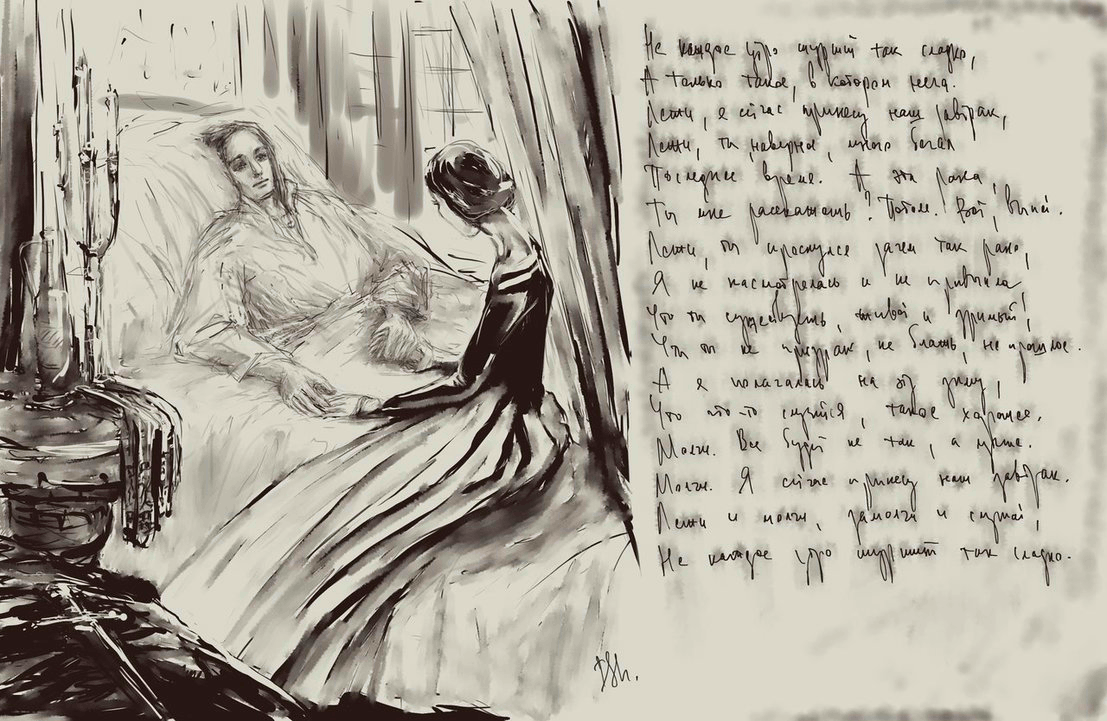 Не каждое утро шуршит так сладко,
А только такое, в котором нега.
Лежи, я сейчас принесу наш завтрак,
Лежи, ты, наверное, много бегал
Последнее время. А эта рана,
Ты мне расскажешь? Потом. Вот, выпей.
Лежи, ты проснулся зачем так рано,
Я не насмотрелась и не привыкла
Что ты существуешь, живой и зримый,
Что ты не призрак, не блажь, не прошлое.
А я полагалась на эту зиму,
Что что-то случится, такое хорошее.
Молчи. Все будет не так, а лучше.
Молчи. Я сейчас принесу наш завтрак.
Лежи и молчи, замолчи и слушай,
Не каждое утро шуршит так сладко.
DSh.